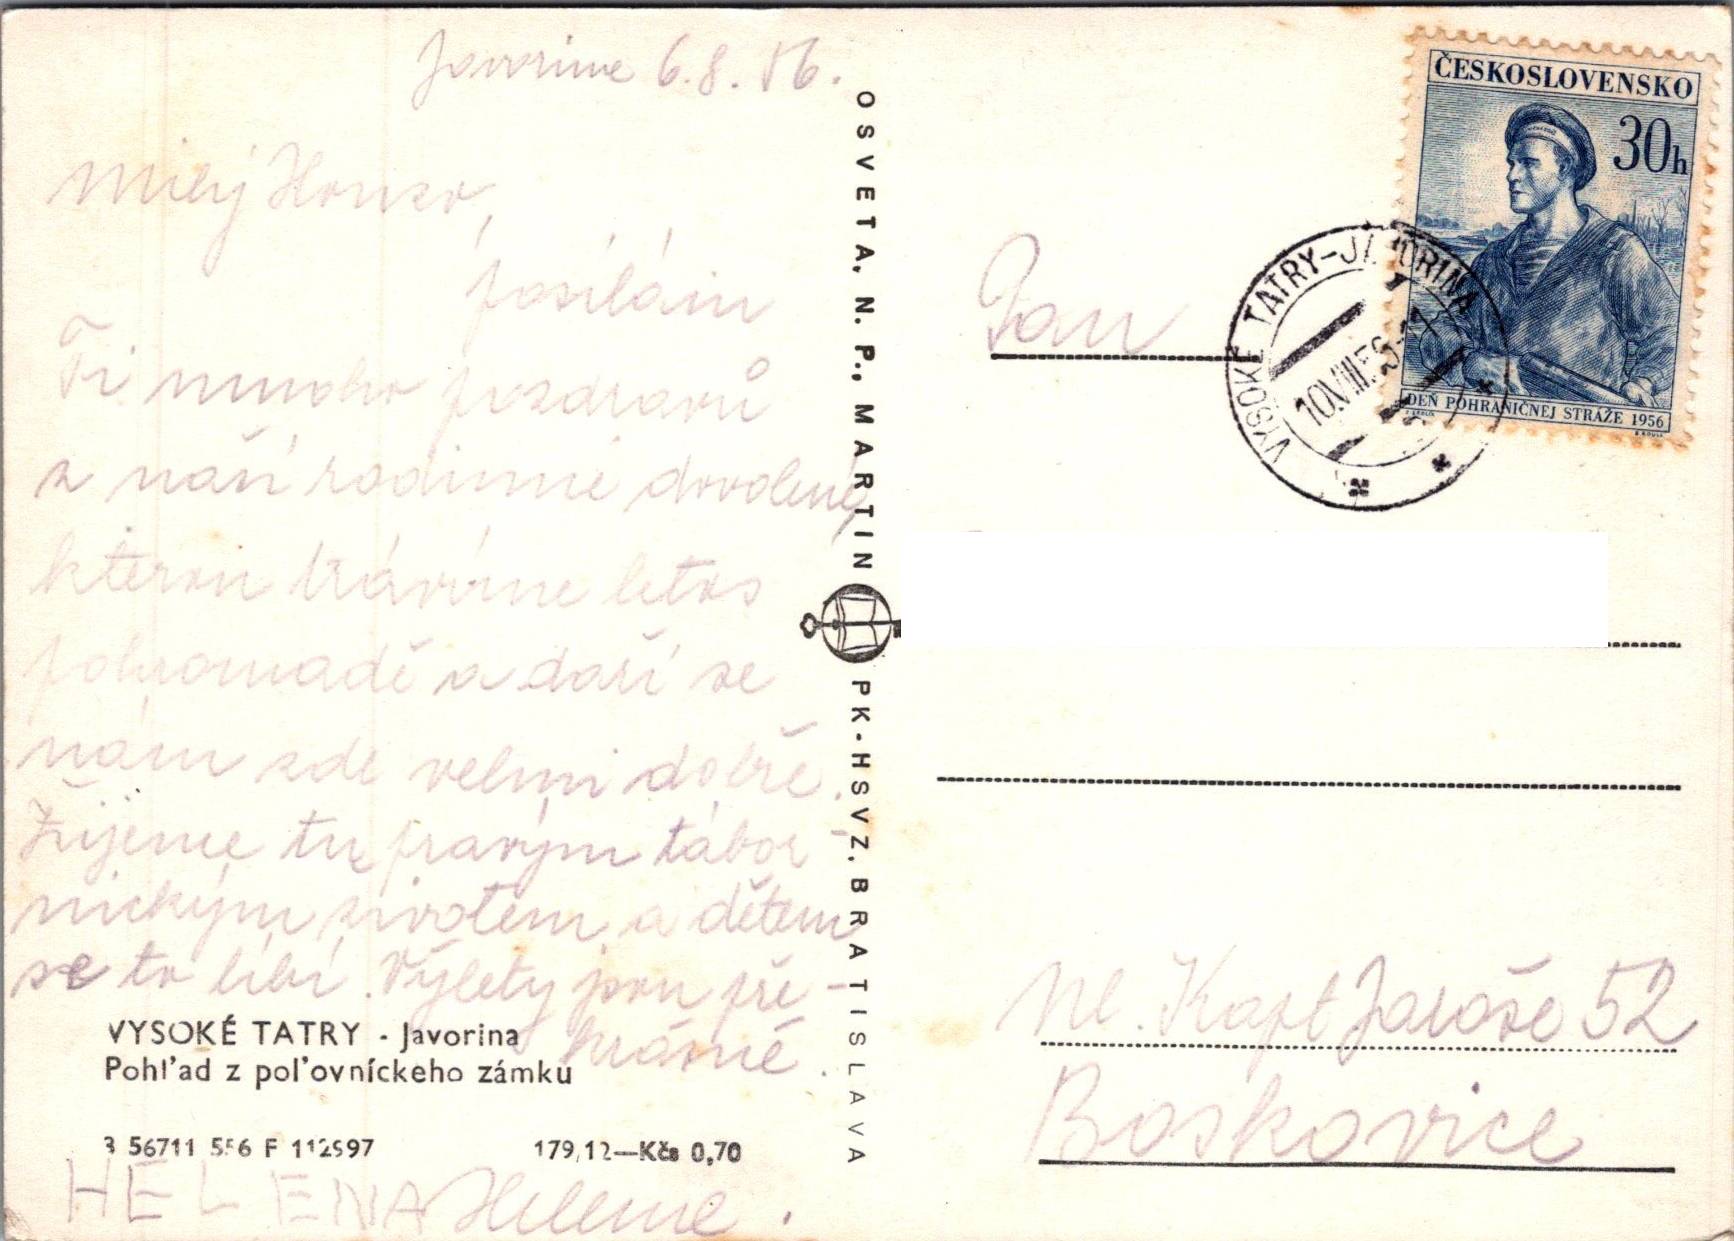 Javorina 6.8.56.
Milý Honzo,
posílám
Ti mnoho pozdravů
z naší rodinné dovolené,
kterou trávíme letos
pohromadě a daří se
nám zde velmi dobře.
Žijeme tu pravým tábor-
nickým životem a dětem
se to líbí. Výlety jsou pře-
krásné.
VYSOKÉ TATRY - Javorina
Pohľad z poľovníckeho zámku
3 56711 556 F 112597
179,12—Kčs 0,70
HELENA Helena.
OSVETA, N. P., MARTIN
PK-HSVZ, BRATISLAVA
ČESKOSLOVENSKO
30h
DEŇ POHRANIČNEJ STRÁŽE 1956
VYSOKÉ TATRY-JAVORINA
10.VIII.56
Pan
Nl. Kapt Jaroše 52
Boskovice